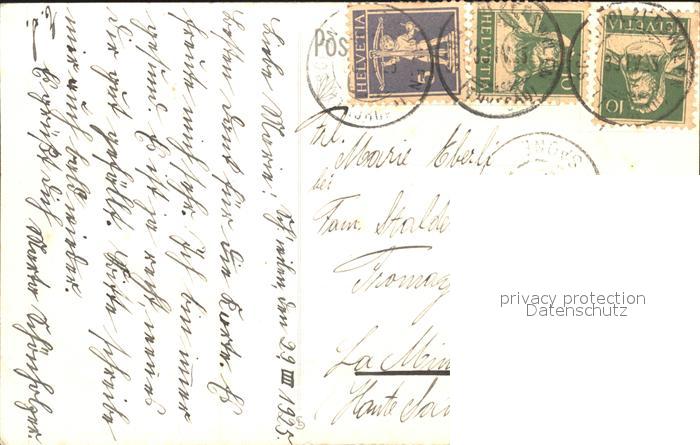 HELVETIA
5
HELVETIA
10
HELVETIA
10
den 29 III 1925.
Liebe Marie!
Besten Dank für die Karte. Es
freute mich sehr. Ich bin immer
gesund. Es ist ja recht wenn es
dir gut gefällt. Bitte schreibe
mir auch bald wieder.
Es grüßt dich
Frl.
Marie Eberli
bei
Fam. Stalde
Fromag
La Min
Haute Saô
privacy protection
Datenschutz